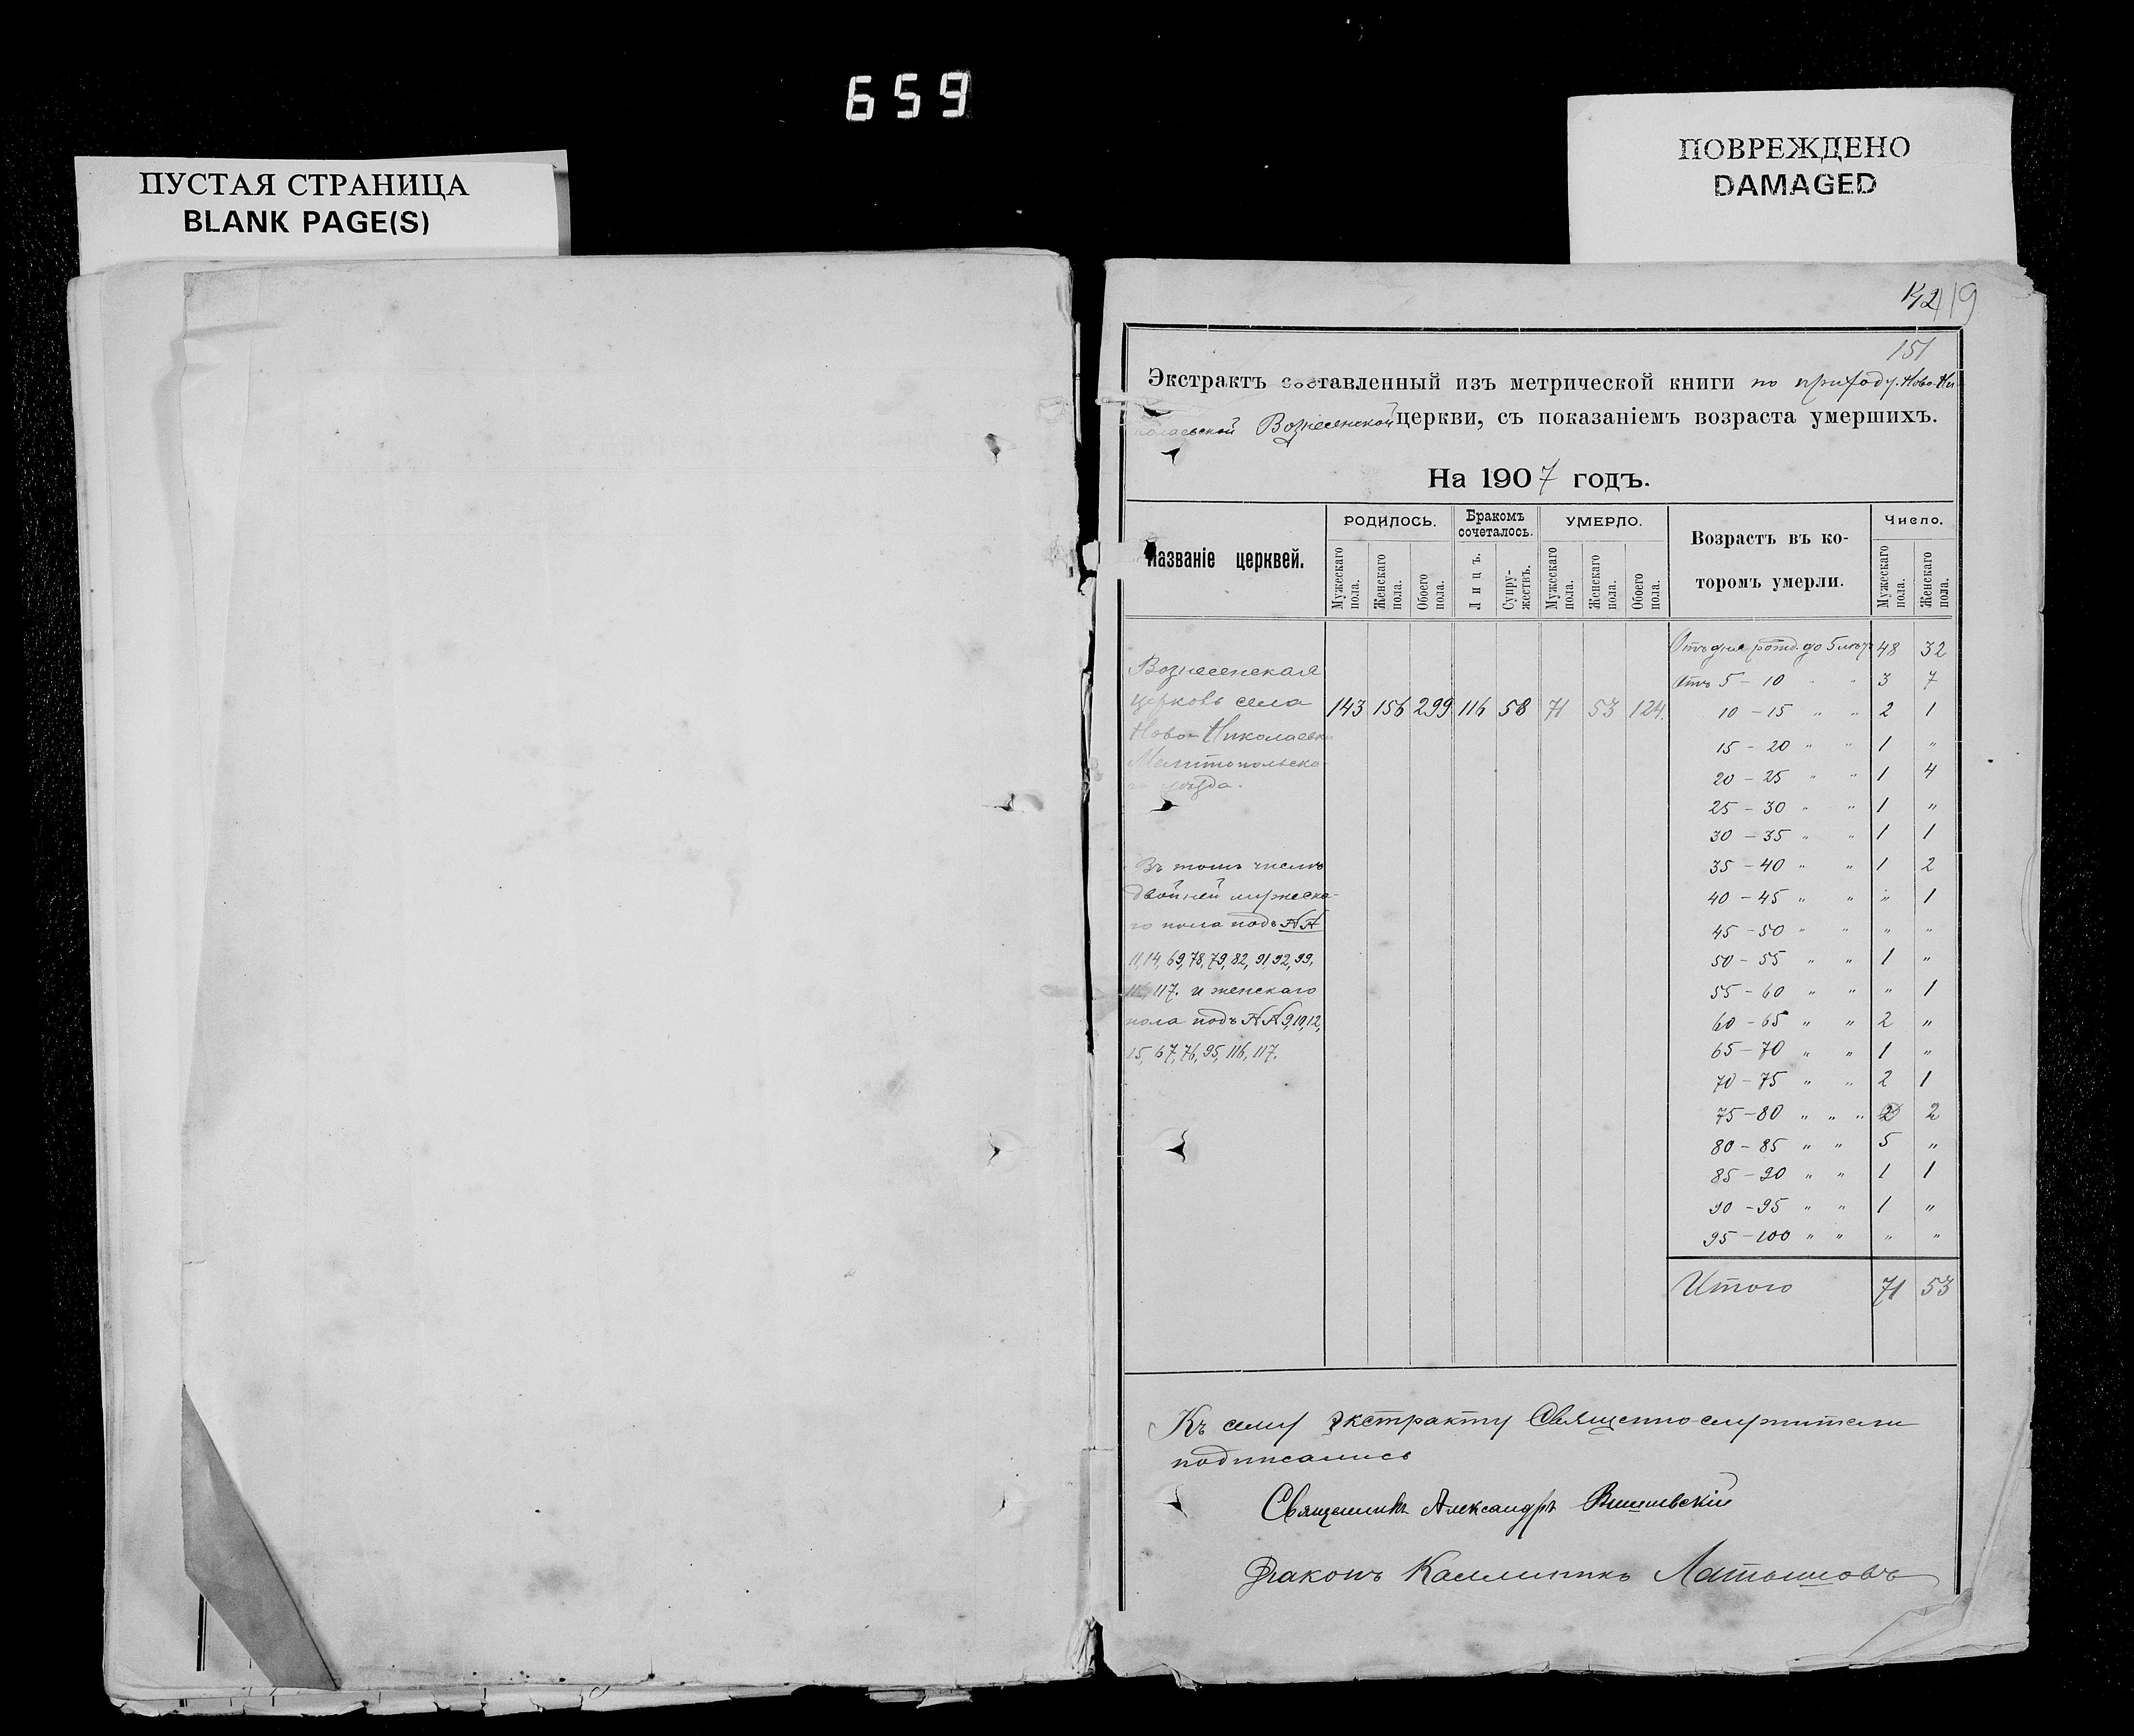 659
ПУСТАЯ СТРАНИЦА
BLANK PAGE(S)
ПОВРЕЖДЕНО
DAMAGED
419
151
Экстрактъ составленный изъ метрической книги по приходу Ново-Ни-
колаевской Вознесенской церкви, съ показаніемъ возраста умершихъ.
На 1907 годъ.
Названіе церквей.
РОДИЛОСЬ.
Мужескаго пола.
Женскаго пола.
Обоего пола.
Бракомъ сочеталось.
Лицъ.
Супружествъ.
УМЕРЛО.
Мужескаго пола.
Женскаго пола.
Обоего пола.
Возрастъ въ ко-
торомъ умерли.
Число.
Мужескаго пола.
Женскаго пола.
Вознесенская
церковь села
Ново-Николаевки
Мелитопольска
го уѣзда.
143 156 299 116 58 71 53 124.
Въ томъ числѣ
двойней мужеска-
го пола подъ №№
11, 14, 69, 78, 79, 82, 91, 92, 99,
117. и женскаго
пола подъ №№ 9, 10, 12,
15, 67, 76, 95, 116, 117.
Отъ дня рожд. до 5 лѣтъ 48 32
Отъ 5 – 10 " " 3 7
10 – 15 " " 2 1
15 – 20 " " 1 "
20 – 25 " " 1 4
25 – 30 " " 1 "
30 – 35 " " 1 1
35 – 40 " " 1 2
40 – 45 " " " 1
45 – 50 " " " "
50 – 55 " " 1 "
55 – 60 " " " 1
60 – 65 " " 2 "
65 – 70 " " 1 "
70 – 75 " " 2 1
75 – 80 " " " 2
80 – 85 " " 5 "
85 – 90 " " 1 1
90 – 95 " " 1 "
95 – 100 " " " "
Итого 71 53
Къ сему экстракту Священно-служители
подписались
Священникъ Александръ
Діаконъ Каллиникъ